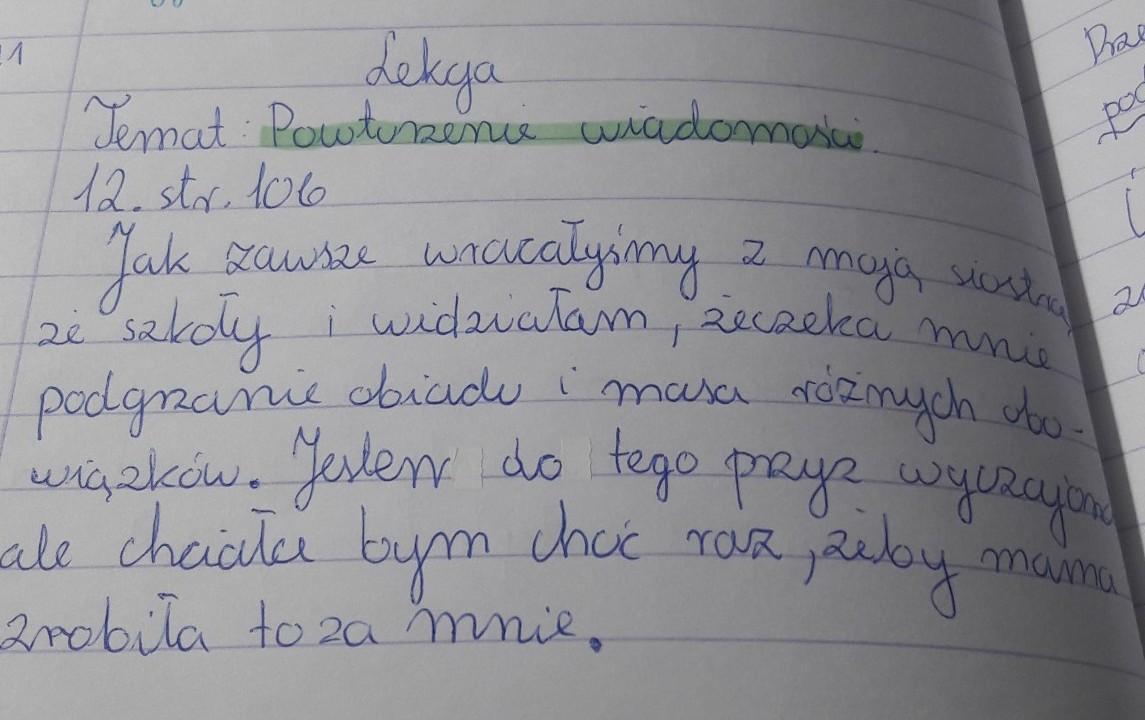 1
Lekcja
Temat: Powtórzenie wiadomości.
12. str. 106
Jak zawsze wracałyśmy z moją siostrą
ze szkoły i widziałam, że czeka mnie
podgrzanie obiadu i masa różnych obo-
wiązków. Jestem do tego przyz wyczajona
ale chciała bym choć raz, żeby mama
zrobiła to za mnie.